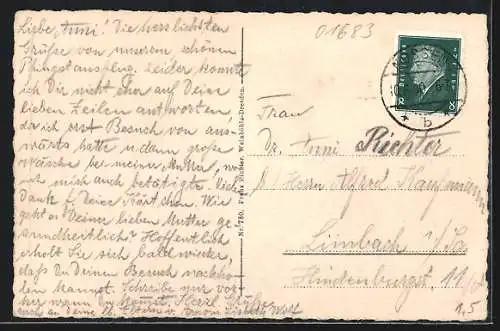 Liebe Anni! Die herzlichsten
Grüße von unserem schönen
Pfingstausflug. Leider konnte
ich Dir nicht eher auf Deine
lieben Zeilen antworten,
da ich erst Besuch von aus-
wärts hatte u. dann große
Wäsche bei meiner Mutter, wo
ich mich auch betätigte. Viel
Dank f. Deine Kärtchen. Wie
geht es Deiner lieben Mutter ge-
sundheitlich? Hoffentlich
erholt Sie sich bald wieder,
daß Du Deinen Besuch nachho-
len kannst. Schreibe nur vor-
her wann Du kommst. Herzl. Grüße
auch an deine
Nr. 780. Franz Stubner, Weinböhla-Dresden.
01683
DEUTSCHES REICH
8 8
* b
Frau
Dr. Anni Richter
b/ Herrn Alfred Kaufmann
Limbach i/Sa
Hindenburgst. 11
1,5